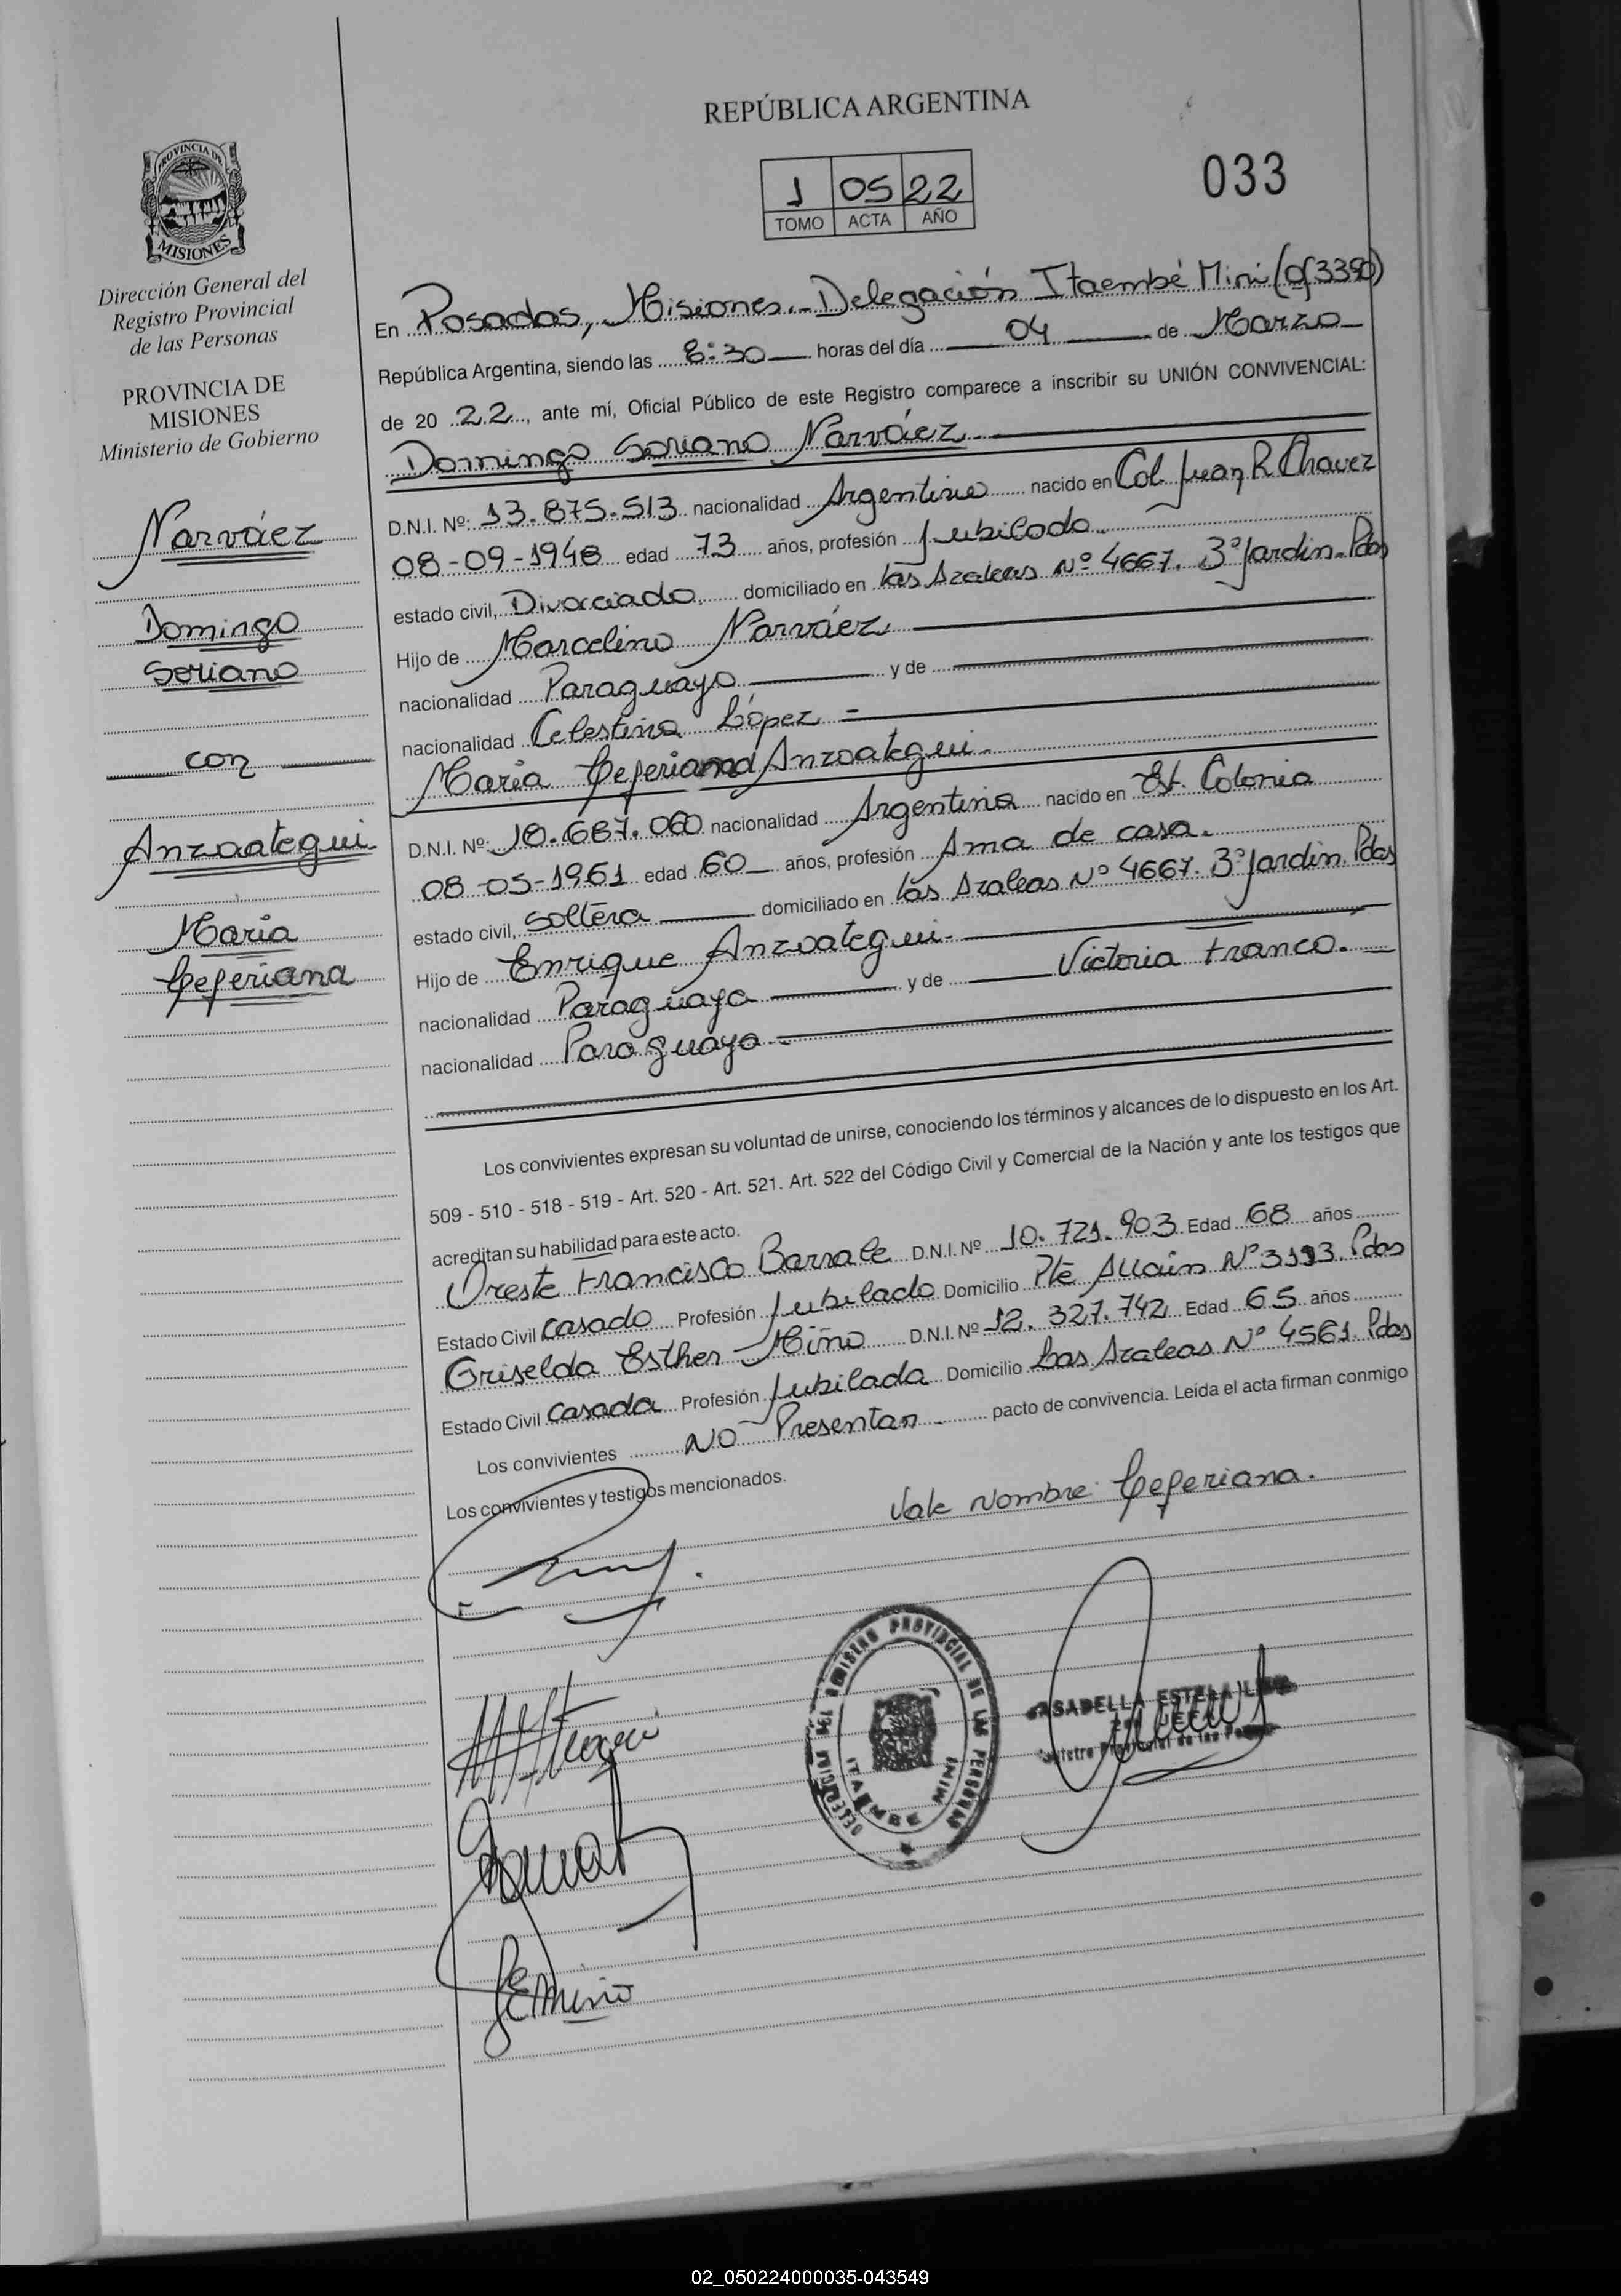 REPÚBLICA ARGENTINA
1 05 22
TOMO ACTA AÑO
033
PROVINCIA DE
MISIONES
Dirección General del
Registro Provincial
de las Personas
PROVINCIA DE
MISIONES
Ministerio de Gobierno
Narváez
Domingo
Soriano
con
Anzoategui
María
Ceferiana
En Posadas, Misiones.- Delegación Itaembé Miní (of 3390)
República Argentina, siendo las 8:30 horas del día 04 de Marzo
de 20 22, ante mí, Oficial Público de este Registro comparece a inscribir su UNIÓN CONVIVENCIAL:
Domingo Soriano Narváez
D.N.I. Nº: 13.875.513 nacionalidad Argentina nacido en Col. Juan R. Chavez
08-09-1948 edad 73 años, profesión Jubilado
estado civil, Divorciado domiciliado en Las Azaleas Nº 4667. 3º Jardin. Pdas
Hijo de Marcelino Narváez
nacionalidad Paraguayo y de
nacionalidad Celestina López -
María Ceferiana Anzoategui -
D.N.I. Nº: 18.687.060 nacionalidad Argentina nacido en Est. Colonia
08-05-1961 edad 60 años, profesión Ama de casa.
estado civil, Soltera domiciliado en Las Azaleas Nº 4667. 3º Jardin. Pdas
Hijo de Enrique Anzoategui -
nacionalidad Paraguaya y de Victoria Franco.
nacionalidad Paraguaya -
Los convivientes expresan su voluntad de unirse, conociendo los términos y alcances de lo dispuesto en los Art.
509 - 510 - 518 - 519 - Art. 520 - Art. 521. Art. 522 del Código Civil y Comercial de la Nación y ante los testigos que
acreditan su habilidad para este acto.
Oreste Francisco Barrale D.N.I. Nº 10.721.903 Edad 68 años
Estado Civil Casado Profesión Jubilado Domicilio Pte Allain Nº 3193. Pdas
Griselda Esther Miño D.N.I. Nº 12.327.742 Edad 65 años
Estado Civil Casada Profesión Jubilada Domicilio Las Azaleas Nº 4561. Pdas
Los convivientes NO Presentan - pacto de convivencia. Leída el acta firman conmigo
Los convivientes y testigos mencionados.
Vale Nombre: Ceferiana.
REGISTRO PROVINCIAL DE LAS PERSONAS
ITAEMBE MINI
02_050224000035-043549